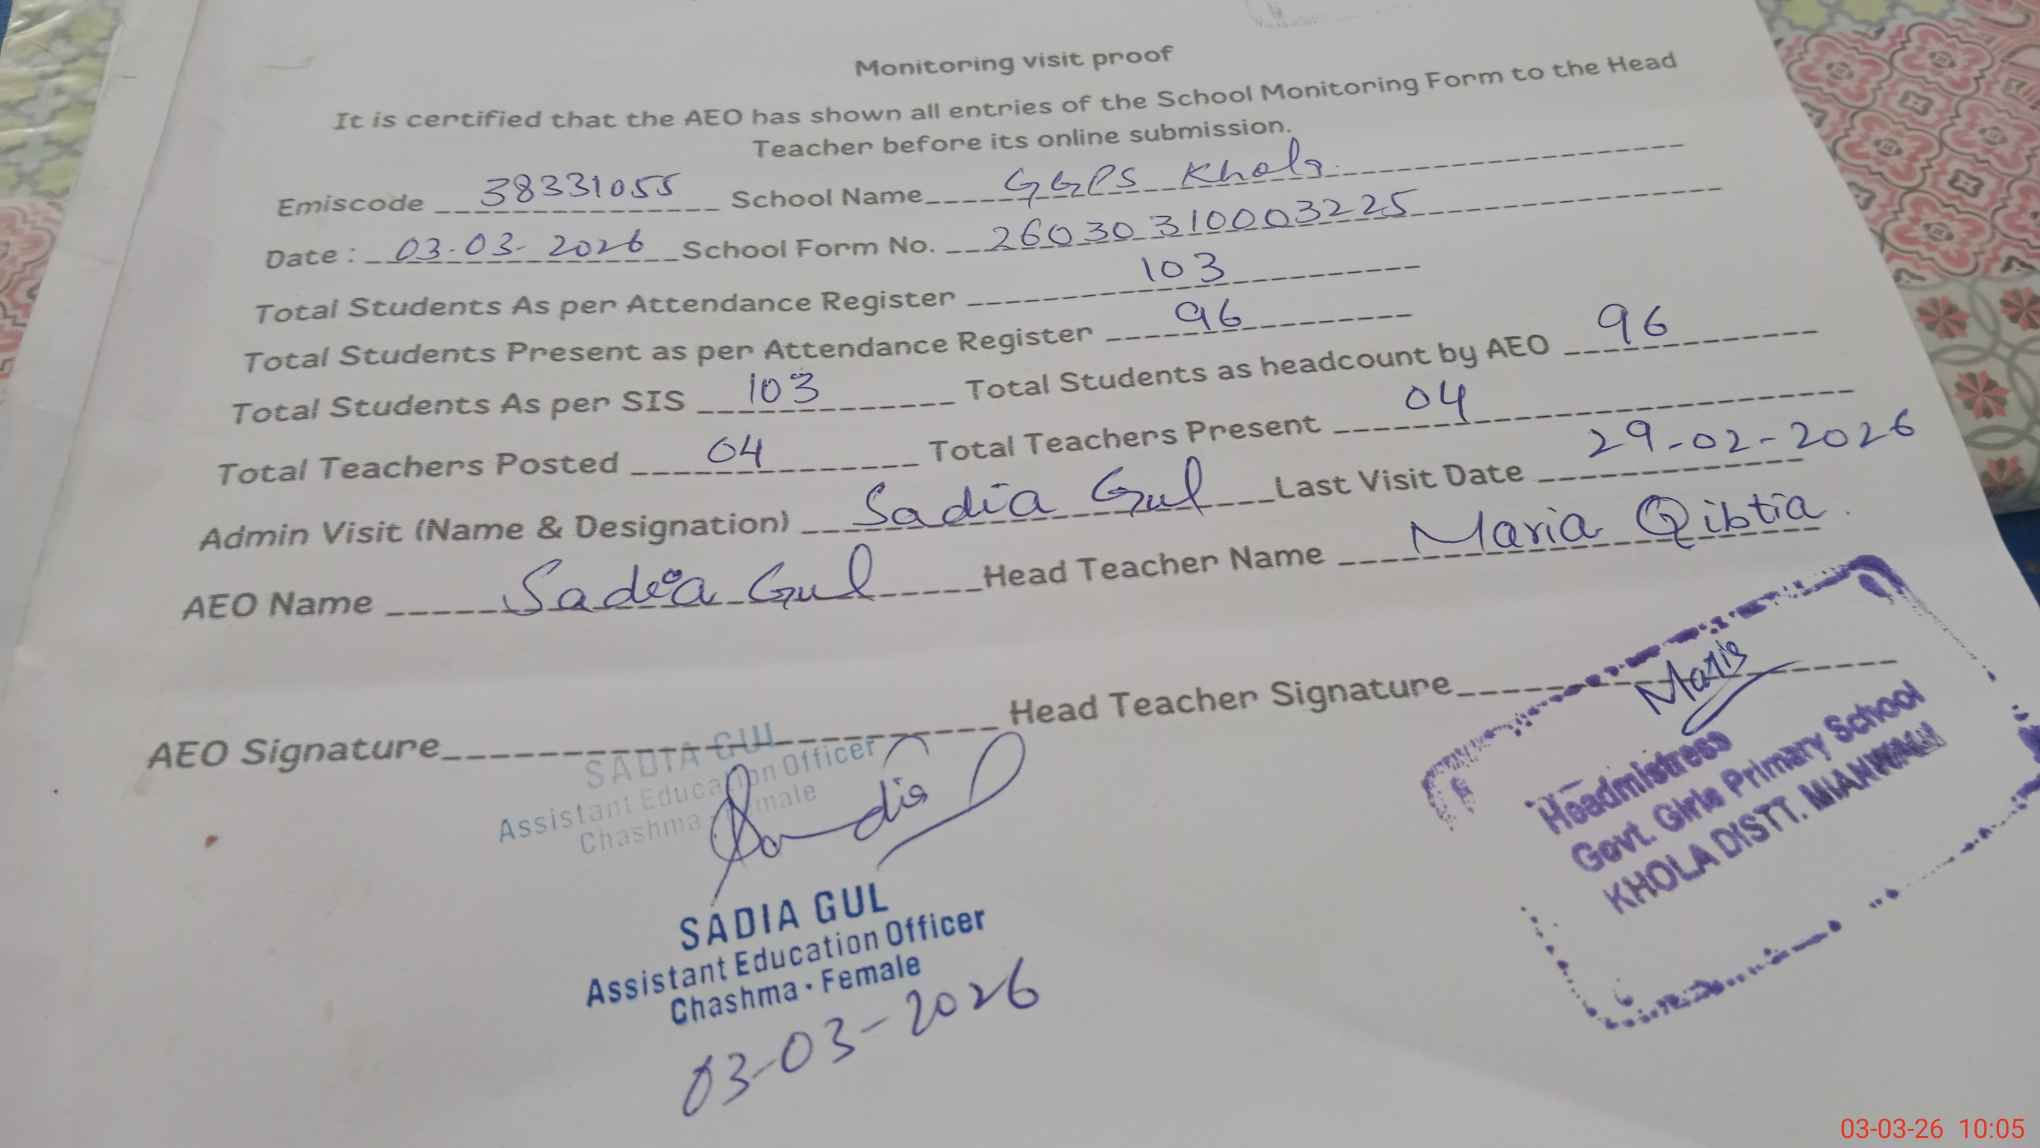 Monitoring visit proof
It is certified that the AEO has shown all entries of the School Monitoring Form to the Head
Teacher before its online submission.
Emiscode 38331055 School Name GGPS Khola
Date : 03-03-2026 School Form No. 26030310003225
Total Students As per Attendance Register 103
Total Students Present as per Attendance Register 96
Total Students As per SIS 103 Total Students as headcount by AEO 96
Total Teachers Posted 04 Total Teachers Present 04
Admin Visit (Name & Designation) Sadia Gul Last Visit Date 29-02-2026
AEO Name Sadia Gul Head Teacher Name Maria Qibtia
AEO Signature Head Teacher Signature Maria
SADIA GUL
Assistant Education Officer
Chashma - Female
Sadia
SADIA GUL
Assistant Education Officer
Chashma - Female
03-03-2026
Headmistress
Govt. Girls Primary School
KHOLA DISTT. MIANWALI
03-03-26 10:05